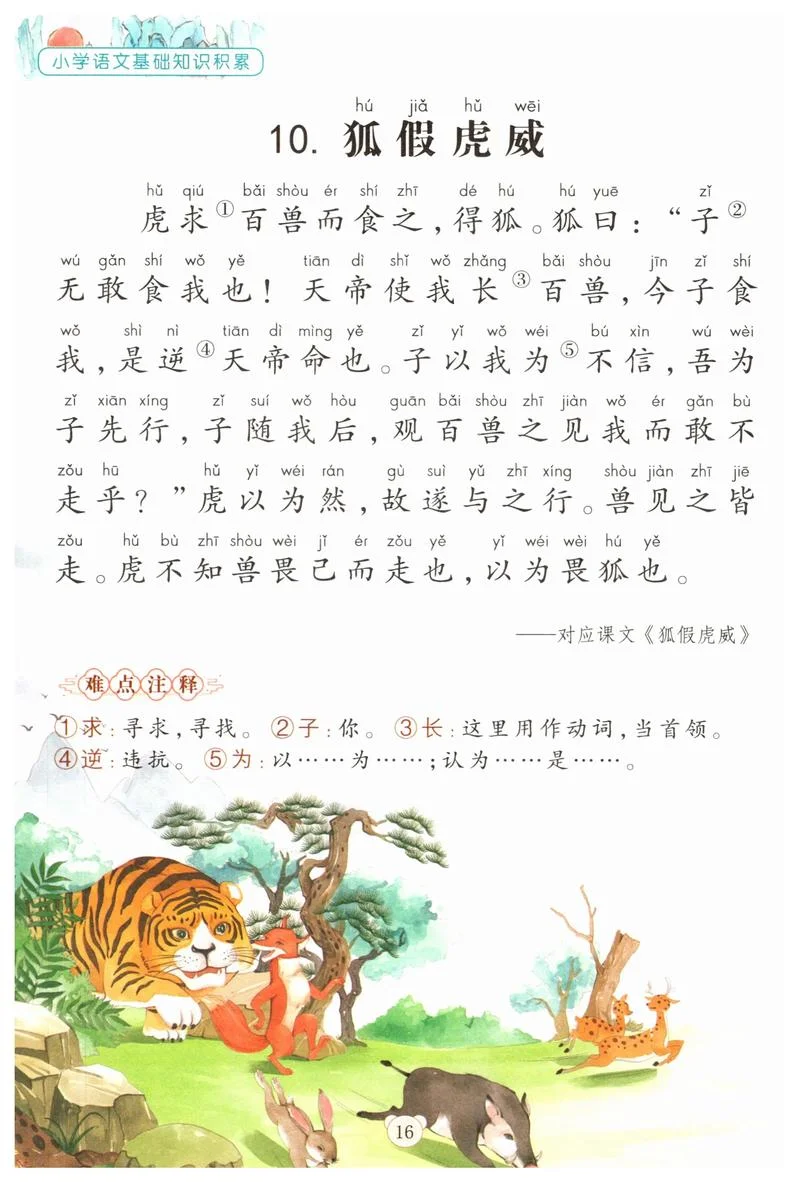 小学语文基础知识积累
hú jiǎ hǔ wēi
10. 狐假虎威
hǔ qiú bǎi shòu ér shí zhī dé hú hú yuē zǐ
虎求①百兽而食之，得狐。狐曰：“子②
wú gǎn shí wǒ yě tiān dì shǐ wǒ zhǎng bǎi shòu jīn zǐ shí
无敢食我也！天帝使我长③百兽，今子食
wǒ shì nì tiān dì mìng yě zǐ yǐ wǒ wéi bú xìn wú wèi
我，是逆④天帝命也。子以我为⑤不信，吾为
zǐ xiān xíng zǐ suí wǒ hòu guān bǎi shòu zhī jiàn wǒ ér gǎn bù
子先行，子随我后，观百兽之见我而敢不
zǒu hū hǔ yǐ wéi rán gù suì yǔ zhī xíng shòu jiàn zhī jiē
走乎？”虎以为然，故遂与之行。兽见之皆
zǒu hǔ bù zhī shòu wèi jǐ ér zǒu yě yǐ wéi wèi hú yě
走。虎不知兽畏己而走也，以为畏狐也。
——对应课文《狐假虎威》
难点注释
①求：寻求，寻找。②子：你。③长：这里用作动词，当首领。
④逆：违抗。⑤为：以……为……；认为……是……。
16